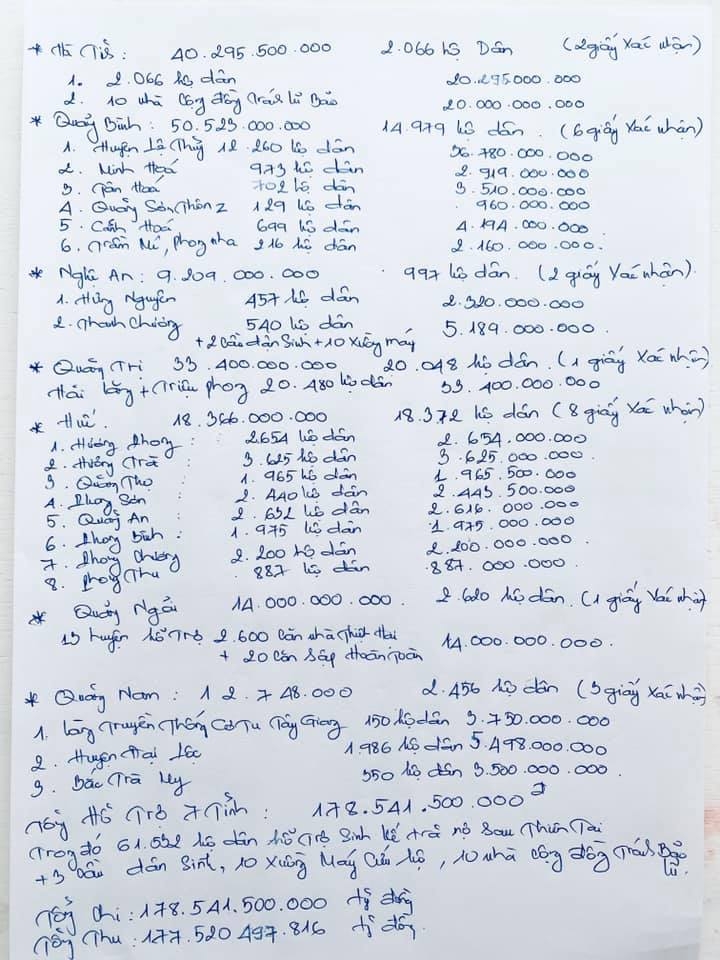 * Hà Tĩnh : 40.295.500.000 2.066 hộ Dân (2 giấy Xác nhận)
1. 2.066 hộ dân 20.295.000.000
2. 10 nhà cộng đồng tránh lũ Bão 20.000.000.000
* Quảng Bình : 50.523.000.000 14.979 hộ dân . (6 giấy Xác nhận)
1. Huyện Lệ Thủy 12.260 hộ dân 36.780.000.000
2. Minh Hoá 973 hộ dân 2.919.000.000
3. Tân Hoá 702 hộ dân 3.510.000.000
4. Quảng Sơn, Thôn 2 129 hộ dân 960.000.000
5. Cảnh Hoá 699 hộ dân 4.194.000.000
6. Trầm Mé, Phong nha 216 hộ dân 2.160.000.000.
* Nghệ An : 9.209.000.000 997 hộ dân. (2 giấy Xác nhận).
1. Hưng Nguyên 457 hộ dân 2.320.000.000
2. Thanh Chương 540 hộ dân 5.189.000.000.
+ 2 cầu dân Sinh + 10 Xuồng máy
* Quảng Trị 33.400.000.000 20.048 hộ dân. (1 giấy Xác nhận)
Hải Lăng + Triệu phong 20.480 hộ dân 33.400.000.000
* Huế. 18.366.000.000 18.372 hộ dân (8 giấy Xác nhận)
1. Hương Phong : 2.654 hộ dân 2.654.000.000
2. Hương Trà : 3.625 hộ dân 3.625.000.000
3. Quảng Thọ : 1.965 hộ dân 1.965.500.000
4. Phong Sơn : 2.440 hộ dân 2.443.500.000
5. Quảng An : 2.632 hộ dân 2.616.000.000
6. Phong Bình : 1.975 hộ dân 1.975.000.000
7. Phong Chương 2.200 hộ dân 2.200.000.000
8. Phong Thu 887 hộ dân 887.000.000
* Quảng Ngãi 14.000.000.000. 2.620 hộ dân. (1 giấy Xác nhận)
13 huyện hỗ Trợ 2.600 Căn nhà Thiệt Hại 14.000.000.000.
+ 20 Căn Sập Hoàn Toàn
* Quảng Nam : 12.748.000 2.456 hộ dân (3 giấy Xác nhận)
1. Làng Truyền Thống Cơ Tu Tây Giang 150 hộ dân 3.750.000.000
2. Huyện Đại Lộc 1.986 hộ dân 5.498.000.000
3. Bắc Trà My 350 hộ dân 3.500.000.000.
Tổng Hỗ Trợ 7 Tỉnh : 178.541.500.000 đ
Trong đó 61.532 hộ dân hỗ Trợ Sinh kế trả nợ Sau Thiên Tai
+ 3 Cầu dân Sinh, 10 Xuồng Máy Cứu hộ, 10 nhà cộng đồng Tránh Bão lũ.
Tổng Chi : 178.541.500.000 tỷ đồng
Tổng Thu : 177.520.497.816 tỷ đồng.